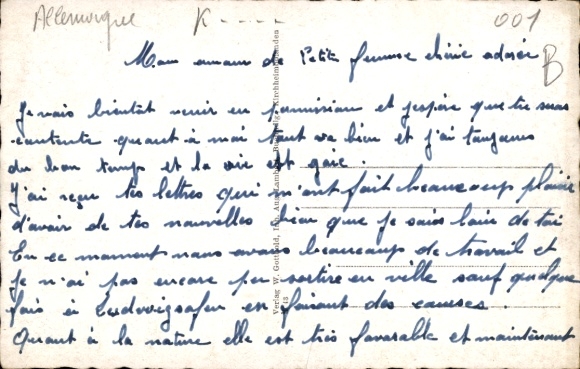 Allemagne K---- 001
B
Mon amour de Petite femme chérie adorée
Je vais bientôt venir en permission et j'espère que tu seras
contente quant à moi tout va bien et j'ai toujours
du bon temps et la vie est gaie.
J'ai reçu tes lettres qui m'ont fait beaucoup plaisir
d'avoir de tes nouvelles bien que je sois loin de toi
En ce moment nous avons beaucoup de travail et
je n'ai pas encore pu sortir en ville sauf quelque
fois à Ludwigsafen en faisant des courses.
Quant à la nature elle est très favorable et maintenant
Verlag W. Gottwold,